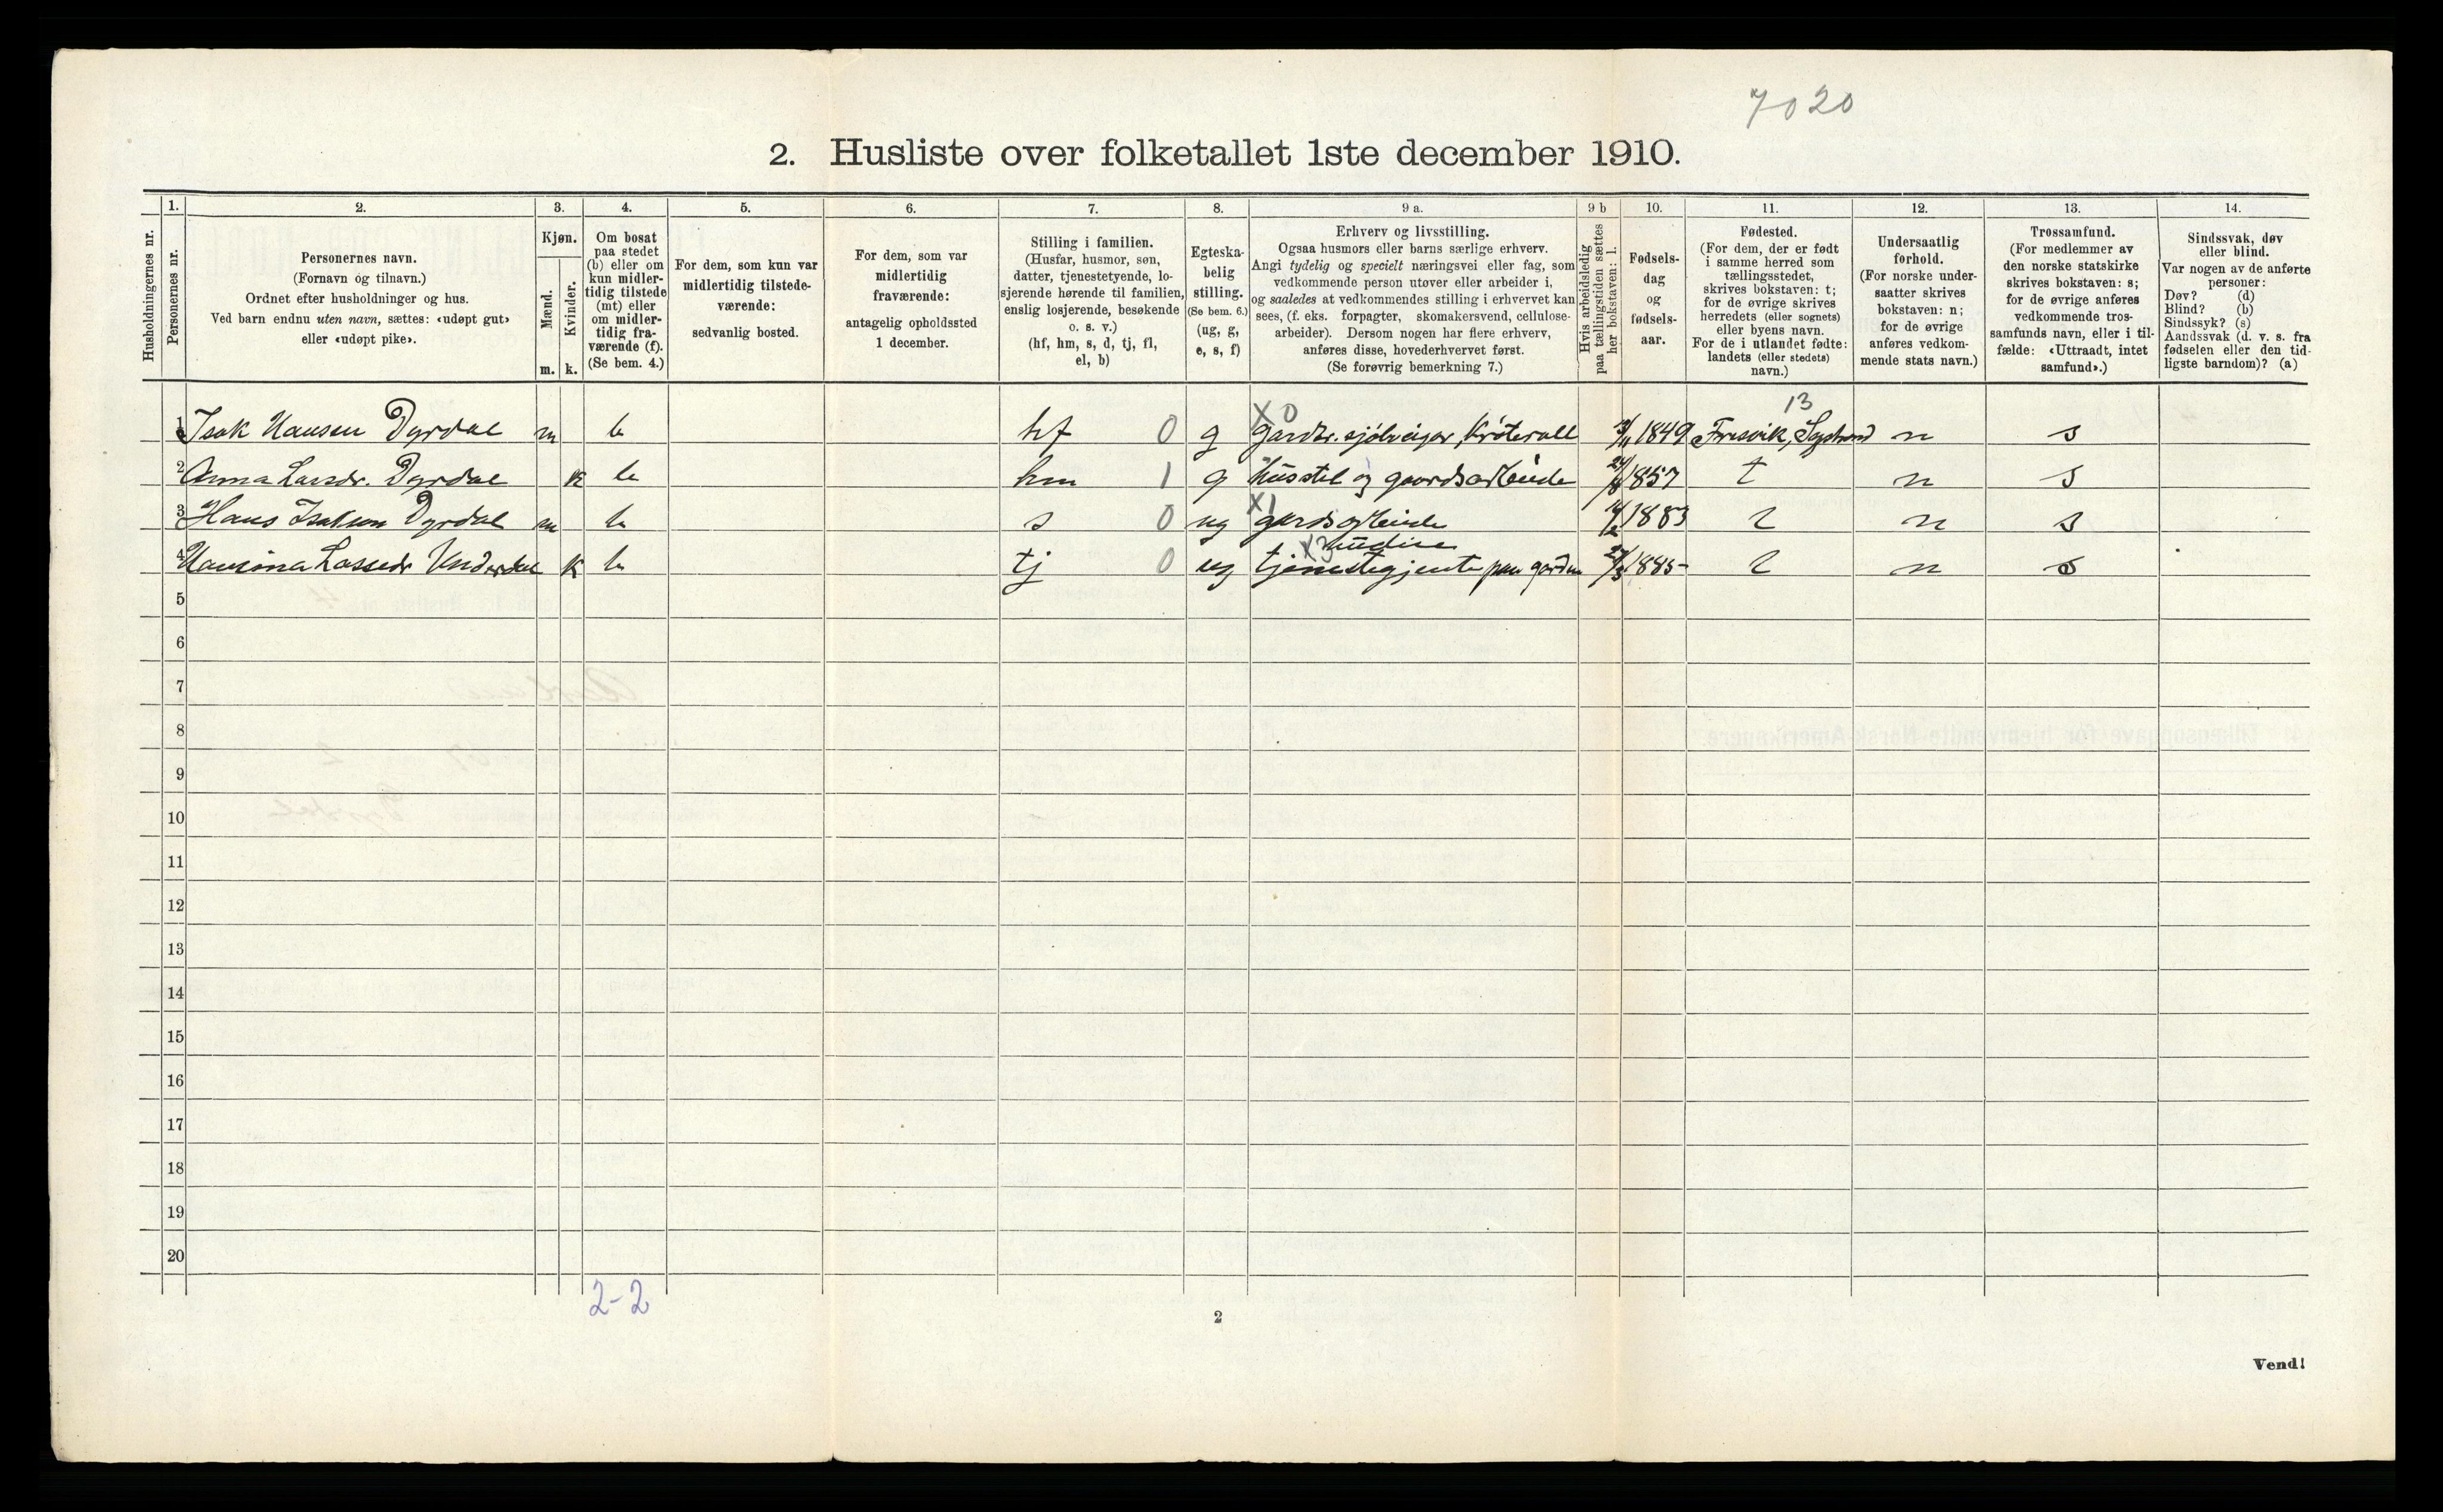 7020
2. Husliste over folketallet 1ste december 1910.
Husholdningernes nr.
1.
Personernes nr.
2.
Personernes navn.
(Fornavn og tilnavn.)
Ordnet efter husholdninger og hus.
Ved barn endnu uten navn, sættes: «udøpt gut»
eller «udøpt pike».
3.
Kjøn.
Mænd.
Kvinder.
m. k.
4.
Om bosat
paa stedet
(b) eller om
kun midler-
tidig tilstede
(mt) eller
om midler-
tidig fra-
værende (f).
(Se bem. 4.)
5.
For dem, som kun var
midlertidig tilstede-
værende:
sedvanlig bosted.
6.
For dem, som var
midlertidig
fraværende:
antagelig opholdssted
1 december.
7.
Stilling i familien.
(Husfar, husmor, søn,
datter, tjenestetyende, lo-
sjerende hørende til familien,
enslig losjerende, besøkende
o. s. v.)
(hf, hm, s, d, tj, fl,
el, b)
8.
Egteska-
belig
stilling.
(Se bem. 6.)
(ug, g,
e, s, f)
9 a.
Erhverv og livsstilling.
Ogsaa husmors eller barns særlige erhverv.
Angi tydelig og specielt næringsvei eller fag, som
vedkommende person utøver eller arbeider i,
og saaledes at vedkommendes stilling i erhvervet kan
sees, (f. eks. forpagter, skomakersvend, cellulose-
arbeider). Dersom nogen har flere erhverv,
anføres disse, hovederhvervet først.
(Se forøvrig bemerkning 7.)
9 b
Hvis arbeidsledig
paa tællingstiden sættes
her bokstaven: l.
10.
Fødsels-
dag
og
fødsels-
aar.
11.
Fødested.
(For dem, der er født
i samme herred som
tællingsstedet,
skrives bokstaven: t;
for de øvrige skrives
herredets (eller sognets)
eller byens navn.
For de i utlandet fødte:
landets (eller stedets)
navn.)
12.
Undersaatlig
forhold.
(For norske under-
saatter skrives
bokstaven: n;
for de øvrige
anføres vedkom-
mende stats navn.)
13.
Trossamfund.
(For medlemmer av
den norske statskirke
skrives bokstaven: s;
for de øvrige anføres
vedkommende tros-
samfunds navn, eller i til-
fælde: «Uttraadt, intet
samfund».)
14.
Sindssvak, døv
eller blind.
Var nogen av de anførte
personer:
Døv? (d)
Blind? (b)
Sindssyk? (s)
Aandssvak (d. v. s. fra
fødselen eller den tid-
ligste barndom)? (a)
X0 13
1 Isak Hansen Dyrdal m b hf 0 g gardbr. sjölveigar, 1849 Fresvik, n s
2 Anna Larsdr. Dyrdal k b hm 1 g husstel og gaardsarbeide 1857 t n s
X1
3 Hans Isakson Dyrdal m b s 0 ug gardsarbeide 1883 n s
X3
4 Undredal k b tj 0 ug tjenestegjente paa garden 1885 n s
5
6
7
8
9
10
11
12
13
14
15
16
17
18
19
20
2-2
2
Vend!